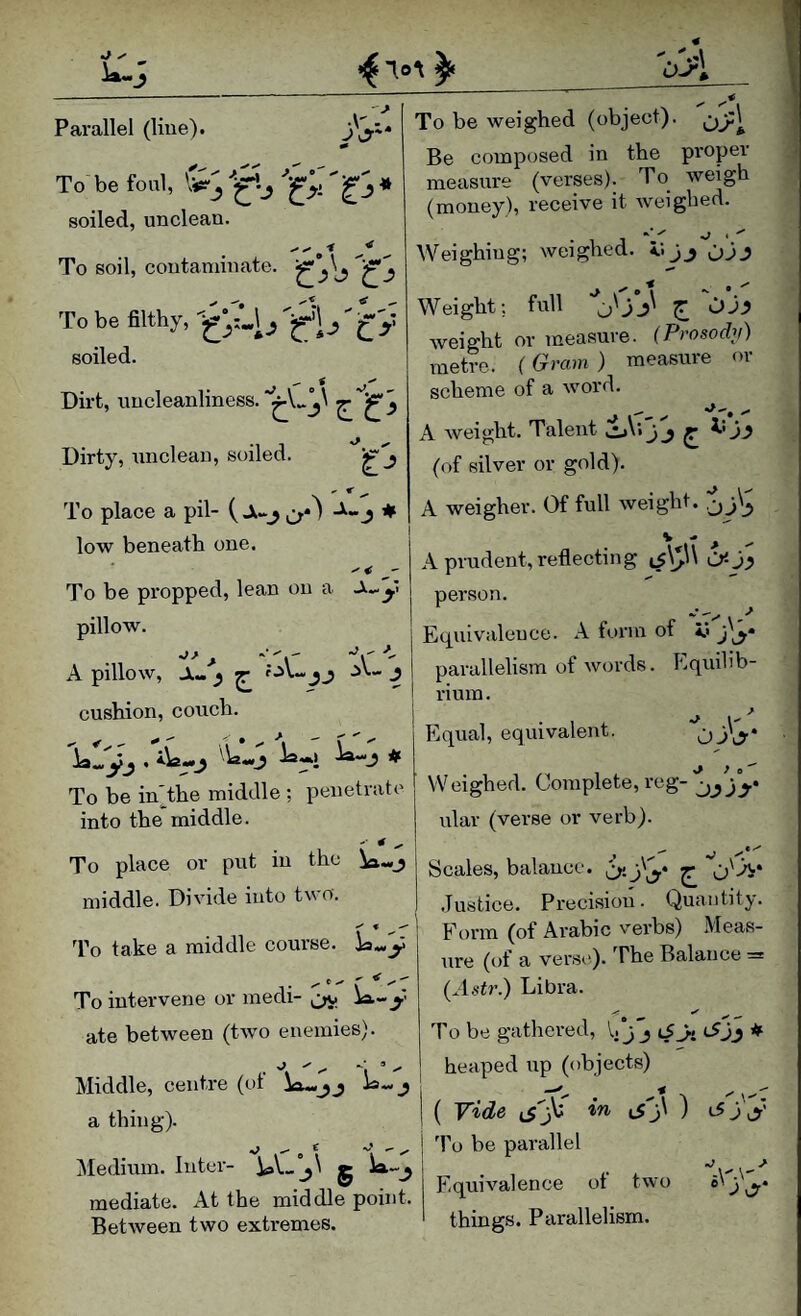 وسط اِتَّزَنَ
To be weighed (object). اِتَّزَنَ
Be composed in the proper
measure (verses). To weigh
(money), receive it weighed.
Weighing; weighed. وَزْنٌ وَزِنَةٌ
Weight; full وَزْنٌ ج أَوْزَانٌ
weight or measure. (Prosody)
metre. (Gram) measure or
scheme of a word.
A weight. Talent وَزْنَةٌ ج وَزَنَاتٌ
(of silver or gold).
A weigher. Of full weight. وَازِنٌ
A prudent, reflecting وَزِينُ الرَّأْيِ
person.
Equivalence. A form of مُوَازَنَةٌ
parallelism of words. Equilib-
rium.
Equal, equivalent. مُوَازِنٌ
Weighed. Complete, reg- مَوْزُونٌ
ular (verse or verb).
Scales, balance. مِيزَانٌ ج مَوَازِينُ
Justice. Precision. Quantity.
Form (of Arabic verbs) Meas-
ure (of a verse). The Balance =
(Astr.) Libra.
To be gathered, * وَزَى يَزِي وَزْيًا
heaped up (objects)
( Vide آزَى in أزى ) تَوَازَى
To be parallel
Equivalence of two مُوَازَاةٌ
things. Parallelism.
Parallel (line). مُوَازٍ
To be foul, * وَسِخَ يَوْسَخُ وَيَاسَخُ وَسَخًا
soiled, unclean.
To soil, contaminate. وَسَّخَ وَأَوْسَخَ
To be filthy, تَوَسَّخَ وَاتَّسَخَ وَاسْتَوْسَخَ
soiled.
Dirt, uncleanliness. وَسَخٌ ج أَوْسَاخٌ
Dirty, unclean, soiled. وَسِخٌ
To place a pil- * وَسَّدَ (من وسد)
low beneath one.
To be propped, lean on a تَوَسَّدَ
pillow.
A pillow, وِسَادٌ وَوِسَادَةٌ ج وُسُدٌ
cushion, couch.
* وَسَطَ يَسِطُ وَسْطًا وَسِطَةً . وَتَوَسَّطَ
To be in the middle; penetrate
into the middle.
To place or put in the وَسَّطَ
middle. Divide into two.
To take a middle course. تَوَسَّطَ
To intervene or medi- تَوَسَّطَ بَيْنَ
ate between (two enemies).
Middle, centre (of وَسْطٌ وَوَسَطٌ
a thing).
Medium. Inter- وَسَطٌ ج أَوْسَاطٌ
mediate. At the middle point.
Between two extremes.